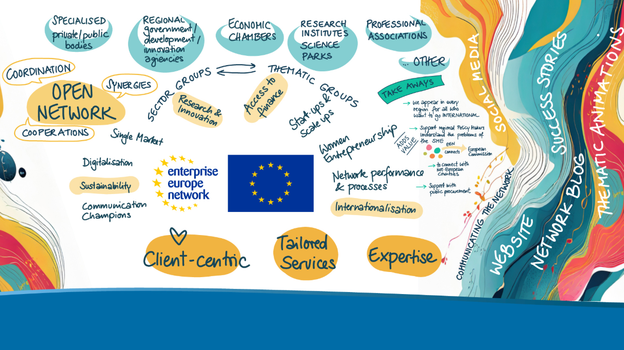 SPECIALISED
private/public
bodies
REGIONAL
government/
development/
innovation
agencies
ECONOMIC
CHAMBERS
RESEARCH
INSTITUTES
SCIENCE
PARKS
PROFESSIONAL
ASSOCIATIONS
... OTHER
COORDINATION
SYNERGIES
OPEN
NETWORK
COOPERATIONS
SECTOR GROUPS
THEMATIC GROUPS
Research &
Innovation
Access to
finance
Start-ups &
Scale ups
Women
Entrepreneurship
Network performance
& processes
Internationalisation
Single Market
Digitalisation
Sustainability
Communication
Champions
enterprise
europe
network
TAKE AWAYS
we appear in every
region for all who
want to go INTERNATIONAL
ADDS
VALUE
Support regional Policy Makers
Understand the problems of
the SME
EEN
connects
European
Commission
to connect with
European
Support with
public procurement
Client-centric
Tailored
Services
Expertise
COMMUNICATING THE NETWORK
SOCIAL MEDIA
WEBSITE
SUCCESS STORIES
NETWORK BLOG
THEMATIC ANIMATIONS